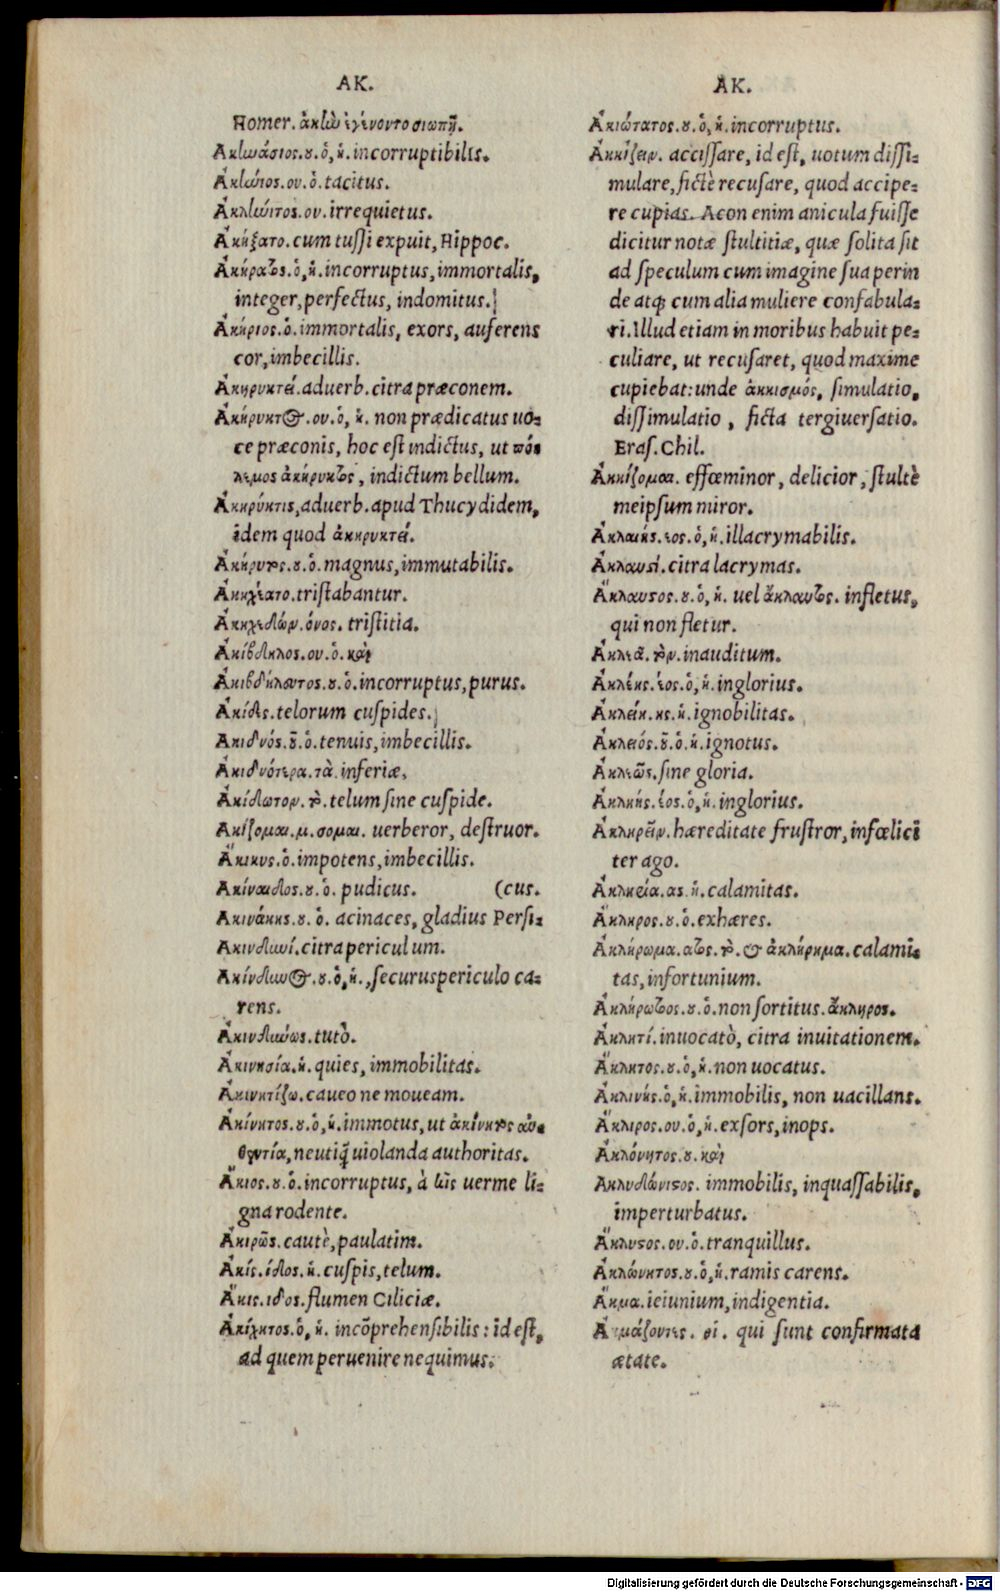 AK.
Homer. ἀκὴν ἐγένοντο σιωπῇ.
Ἀκηάσιος.ου.ὁ,ἡ.incorruptibilis.
Ἀκήνιος.ου.ὁ.tacitus.
irrequietus.
cum tussi expuit, Hippoc.
Ἀκήρατος.ὁ,ἡ.incorruptus, immortalis,
integer, perfectus, indomitus.
Ἀκήριος.ὁ.immortalis, exors, auferens
cor, imbecillis.
Ἀκηρυκτεί.aduerb.citra præconem.
Ἀκήρυκτος.ου.ὁ, ἡ. non prædicatus uo-
ce præconis, hoc est indictus, ut πό-
λεμος ἀκήρυκτος, indictum bellum.
Ἀκηρύκτις, aduerb. apud Thucydidem,
idem quod ἀκηρυκτεί.
Ἀκήρυτος.ου.ὁ.magnus, immutabilis.
Ἀκηχέατο.tristabantur.
Ἀκηχεδών.όνος. tristitia.
Ἀκίβδηλος.ου.ὁ.καὶ
Ἀκιβδήλευτος.ου.ὁ.incorruptus, purus.
Ἀκίδες.telorum cuspides.
Ἀκιδνός.οῦ.ὁ.tenuis, imbecillis.
Ἀκιδνότερα.τὰ.inferiæ,
Ἀκίδωτον.τὸ.telum sine cuspide.
Ἀκίζομαι.μ.σομαι. uerberor, destruor.
Ἄκικυς.ὁ.impotens, imbecillis.
Ἀκίναιδος.ου.ὁ. pudicus. (cus.
Ἀκινάκης.ου.ὁ. acinaces, gladius Persi-
Ἀκινδυνί.citra periculum.
Ἀκίνδυνος.ου.ὁ,ἡ., securus periculo ca-
rens.
Ἀκινδύνως.tutò.
Ἀκινησία.ἡ. quies, immobilitas.
Ἀκινητίζω.caueo ne moueam.
Ἀκίνητος.ου.ὁ,ἡ.immotus, ut ἀκίνητος αὐ-
θεντία, neutiq̃ uiolanda authoritas.
Ἄκιος.ου.ὁ.incorruptus, à κὶς uerme li-
gna rodente.
Ἀκιρῶς.cautè, paulatim.
Ἀκίς.ίδος.ἡ.cuspis, telum.
Ἄκις.ιδος.flumen Ciliciæ.
Ἀκίχητος.ὁ, ἡ. incõprehensibilis: id est,
ad quem peruenire nequimus.
AK.
Ἀκιώτατος.ου.ὁ,ἡ.incorruptus.
Ἀκκίζειν. accissare, id est, uotum dissi-
mulare, fictè recusare, quod accipe-
re cupias. Acon enim anicula fuisse
dicitur notæ stultitiæ, quæ solita sit
ad speculum cum imagine sua perin
de atq; cum alia muliere confabula-
ri. Illud etiam in moribus habuit pe-
culiare, ut recusaret, quod maxime
cupiebat: unde ἀκκισμός, simulatio,
dissimulatio, ficta tergiuersatio.
Eras. Chil.
Ἀκκίζομαι. effœminor, delicior, stultè
meipsum miror.
Ἀκλαιής.έος.ὁ,ἡ.illacrymabilis.
Ἀκλαυσί.citra lacrymas.
Ἄκλαυστος.ου.ὁ,ἡ. uel ἄκλαυτος. infletus,
qui non fletur.
Ἀκλεᾶ. τὸν.inauditum.
Ἀκλέης.έος.ὁ,ἡ.inglorius.
Ἀκλείη.ης.ἡ.ignobilitas.
Ἀκλειός.οῦ.ὁ.ἡ.ignotus.
Ἀκλεῶς.sine gloria.
Ἀκλής.έος.ὁ,ἡ.inglorius.
Ἀκληρεῖν.hæreditate frustror, infœlici
ter ago.
Ἀκληρία.ας.ἡ.calamitas.
Ἄκληρος.ου.ὁ.exhæres.
Ἀκλήρωμα.ατος.τὸ.& ἀκλήρημα.calami-
tas, infortunium.
Ἀκλήρωτος.ου.ὁ.non sortitus.ἄκληρος.
Ἀκλητί.inuocatò, citra inuitationem.
Ἄκλητος.ου.ὁ,ἡ.non uocatus.
Ἀκλινής.ὁ,ἡ.immobilis, non uacillans.
Ἄκλιρος.ου.ὁ,ἡ.exsors, inops.
Ἀκλόνητος.ου.καὶ
Ἀκλυδώνιστος. immobilis, inquassabilis,
imperturbatus.
Ἄκλυστος.ου.ὁ.tranquillus.
Ἀκλώνητος.ου.ὁ,ἡ.ramis carens.
Ἄκμα.ieiunium, indigentia.
Ἀκμάζοντες. οἱ. qui sunt confirmata
ætate.
Digitalisierung gefördert durch die Deutsche Forschungsgemeinschaft - DFG